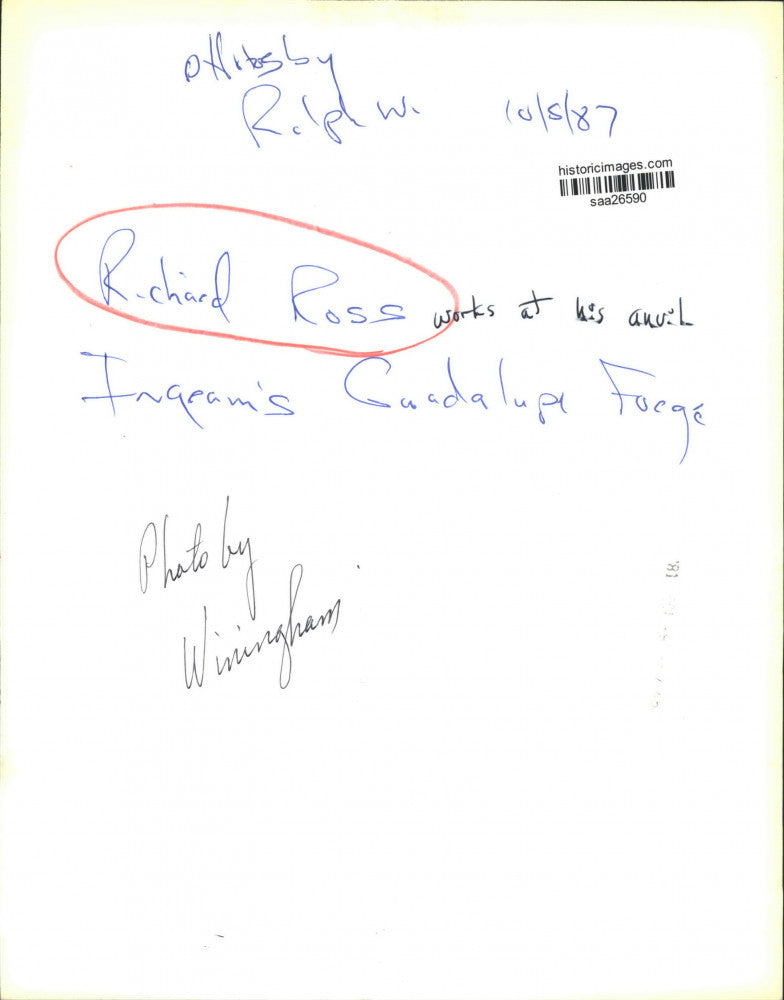 by
Ralph W. 10/5/87
historicimages.com
saa26590
Richard Ross works at his anvil
Ingram's Guadalupe Forge
Photo by
Winingham